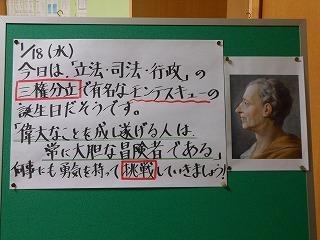 1/18(水)
今日は、「立法・司法・行政」の
三権分立で有名なモンテスキューの
誕生日だそうです。
「偉大なことを成し遂げる人は、
常に大胆な冒険者である」
何事にも勇気を持って挑戦していきましょう!